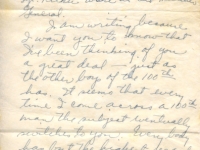 General.
I am writing because
I want you to know that
I've been thinking of you
a great deal — just as
the other boys of the 100th
has. It seems that every
time I come across a 100th
man the subject eventually
switches to you. Everybody
has but the highest